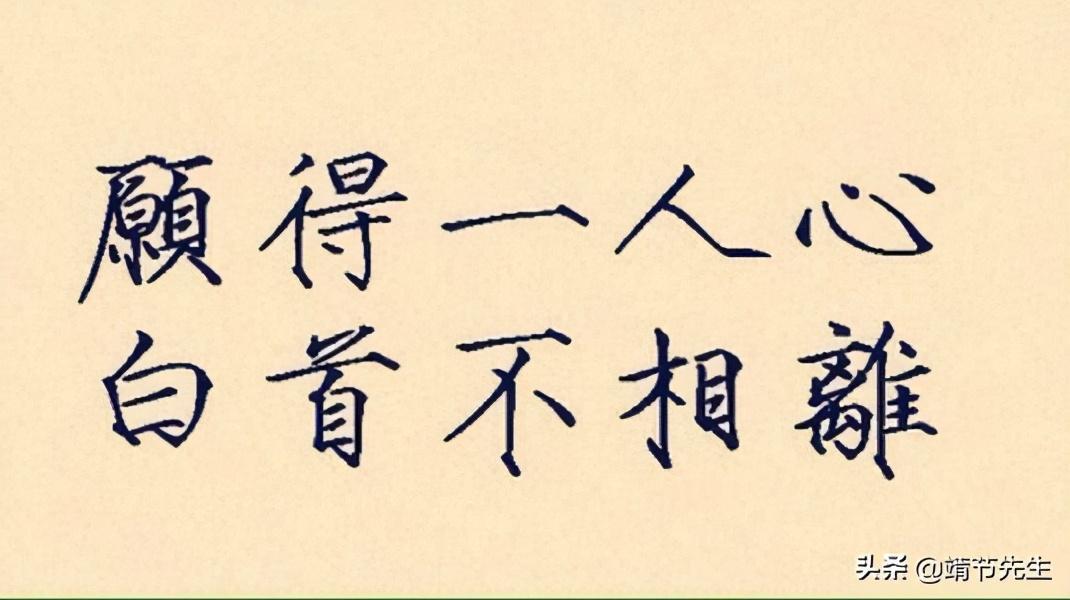 願得一人心
白首不相離
头条 @靖节先生